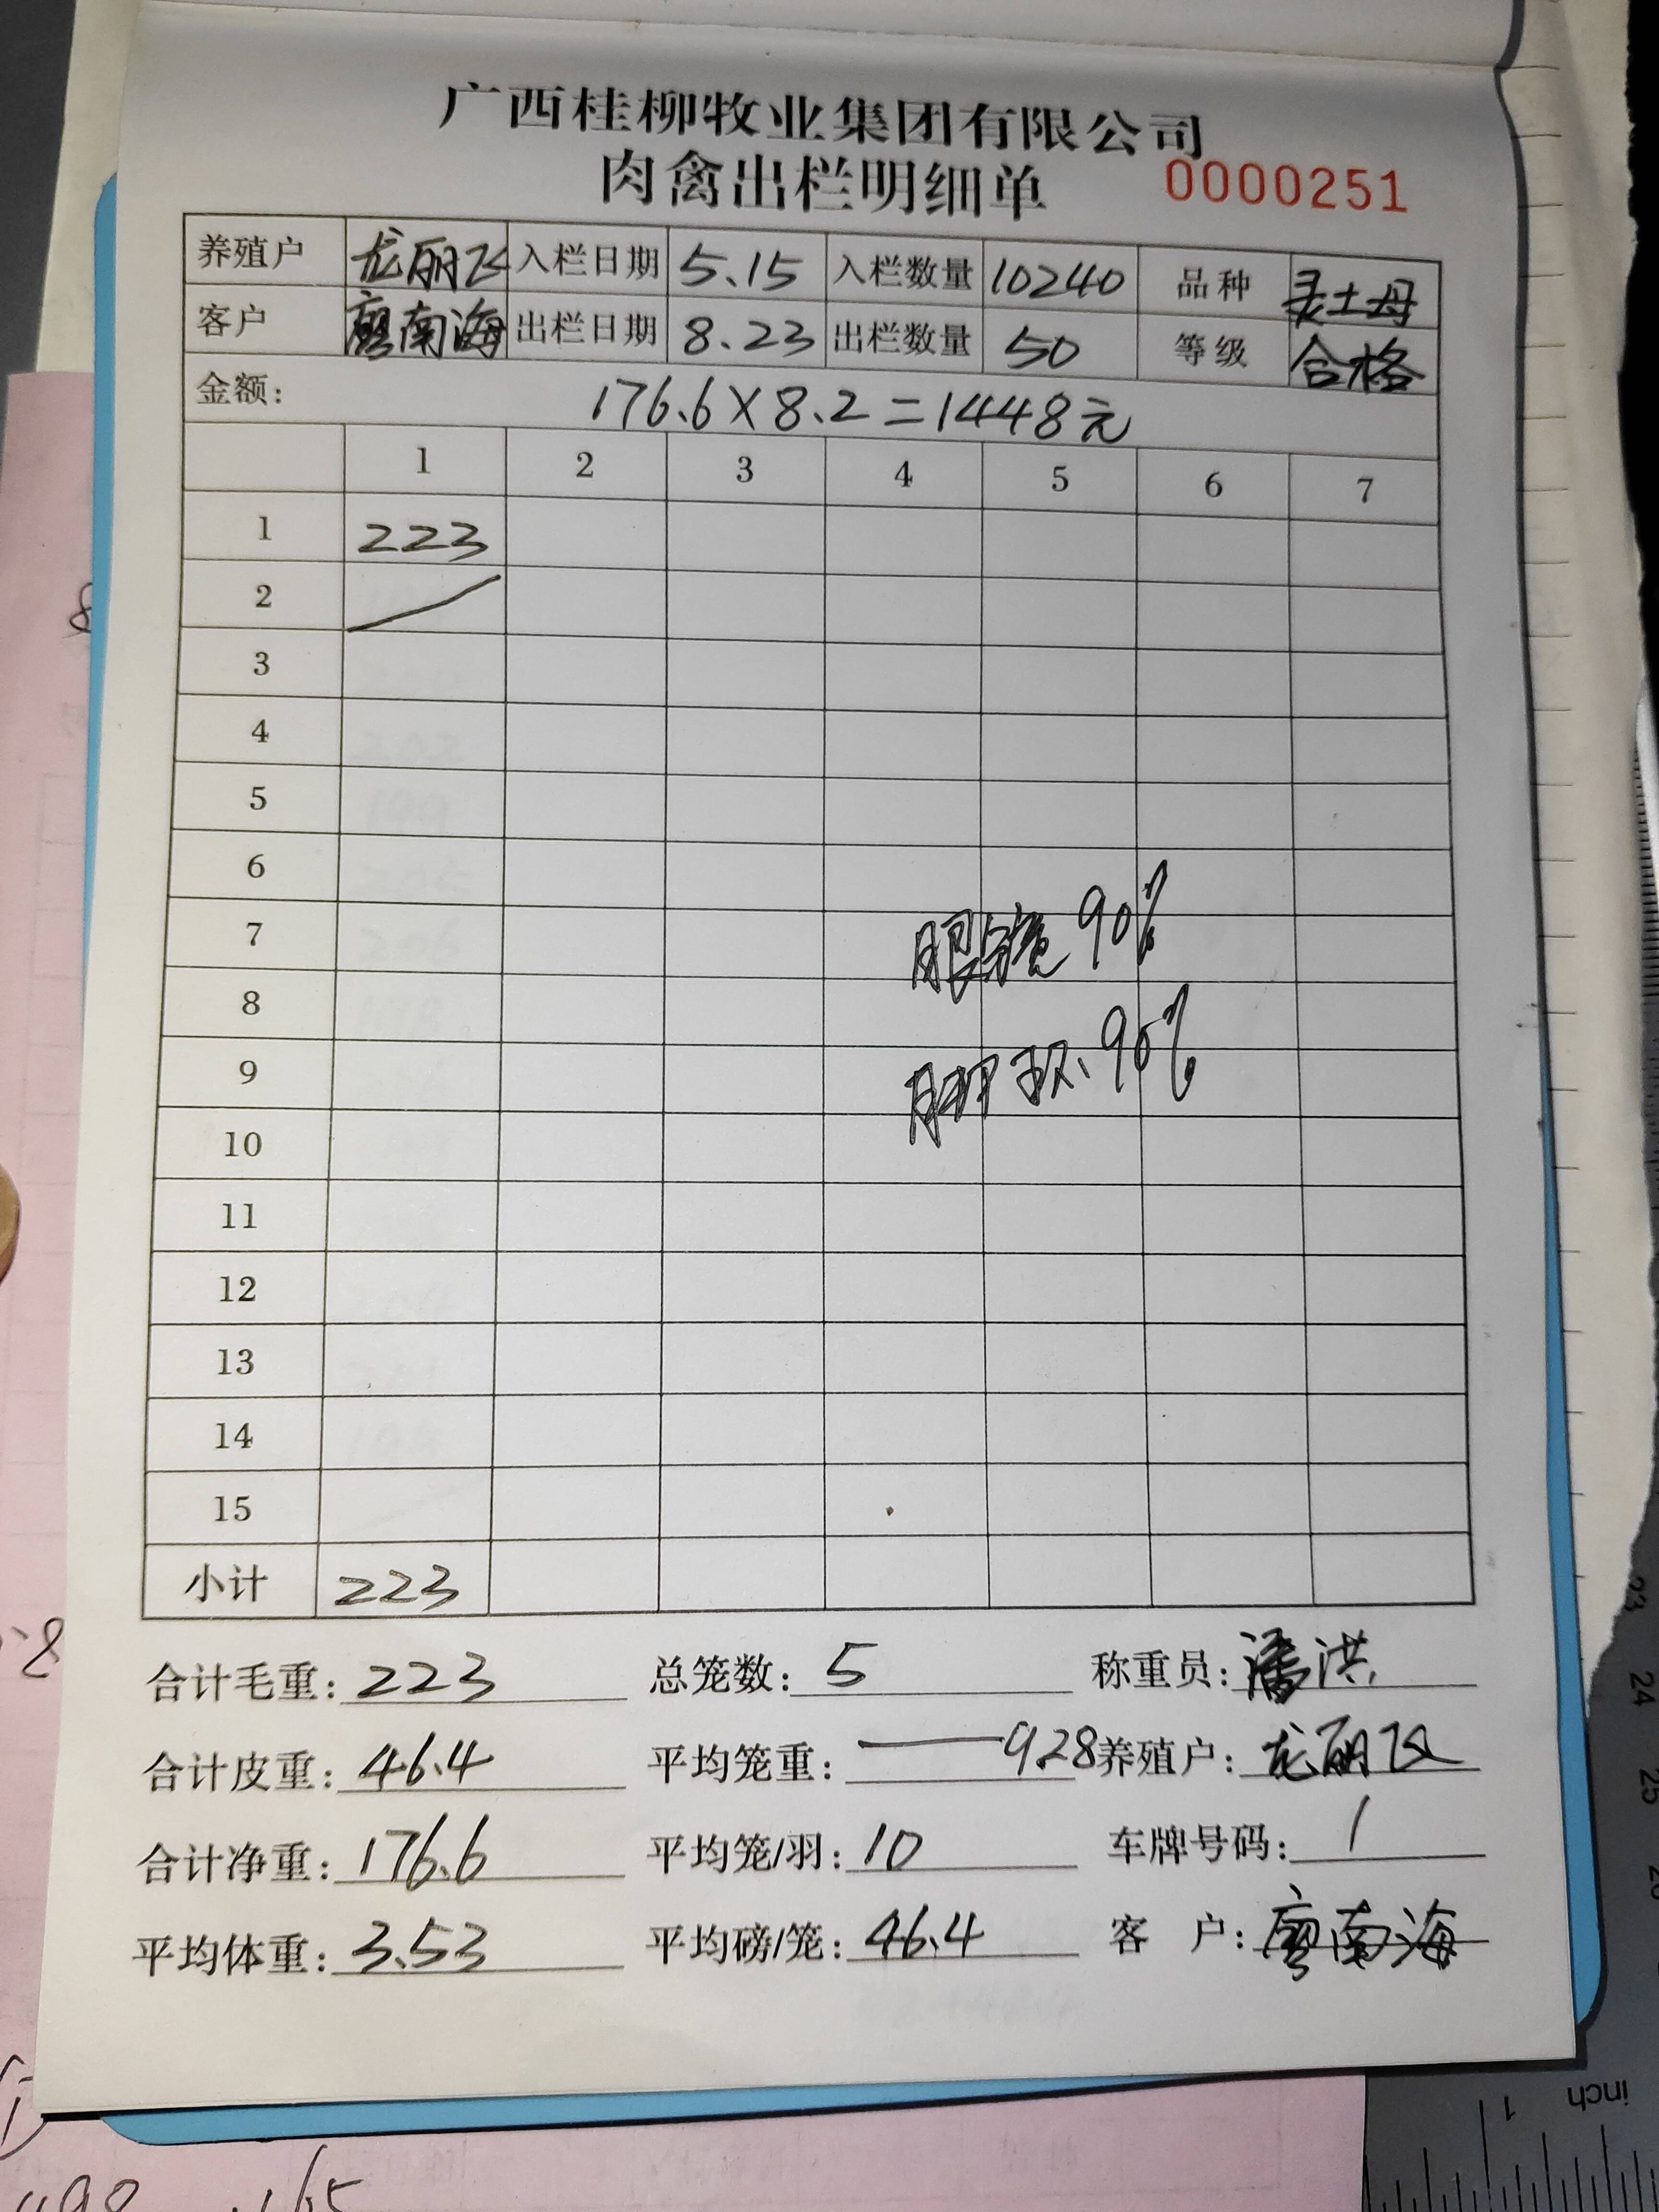 广西桂柳牧业集团有限公司
肉禽出栏明细单 0000251
养殖户 龙丽飞 入栏日期 5.15 入栏数量 10240 品种 灵土母
客户 廖南海 出栏日期 8.23 出栏数量 50 等级 合格
金额: 176.6×8.2=1448元
1 2 3 4 5 6 7
1 223
2
3
4
5
6
7 眼镜90%
8
9 脚环90%
10
11
12
13
14
15
小计 223
合计毛重: 223 总笼数: 5 称重员: 潘洪
合计皮重: 46.4 平均笼重: 9.28 养殖户: 龙丽飞
合计净重: 176.6 平均笼/羽: 10 车牌号码: /
平均体重: 3.53 平均磅/笼: 46.4 客 户: 廖南海
inch
1
23
24
25